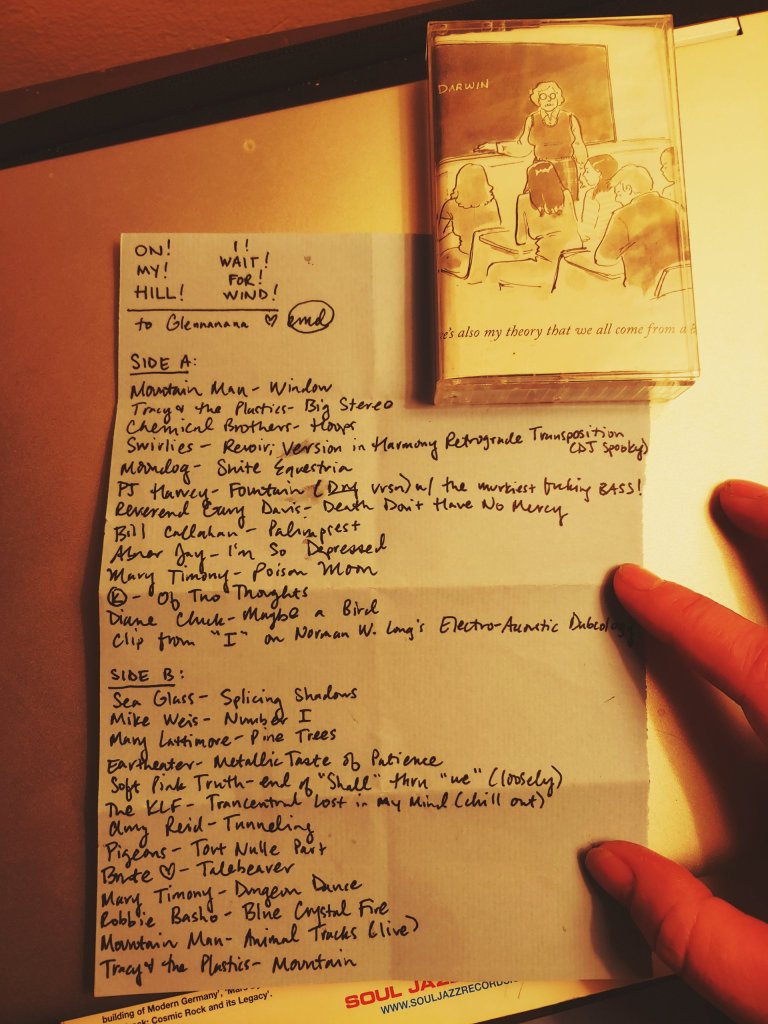 DARWIN
e's also my theory that we all come from a
ON! I!
MY! WAIT!
HILL! FOR!
WIND!
to Glennanana ♡ emd
SIDE A:
Mountain Man - Window
Tracy & the Plastics - Big Stereo
Chemical Brothers - Hoops
Swirlies - Revoir; Version in Harmony Retrograde Transposition
(DJ Spooky)
Moondog - Suite Equestria
PJ Harvey - Fountain (Dry vrsn) w/ the murkiest fucking BASS!
Reverend Gary Davis - Death Don't Have No Mercy
Bill Callahan - Palimpsest
Abner Jay - I'm So Depressed
Mary Timony - Poison Moon
Ⓚ - Of Two Thoughts
Diane Cluck - Maybe a Bird
Clip from "I" on Norman W. Long's Electro-Acoustic Dubcology
SIDE B:
Sea Glass - Splicing Shadows
Mike Weis - Number I
Mary Lattimore - Pine Trees
Eartheater - Metallic Taste of Patience
Soft Pink Truth - end of "Shall" thru "we" (loosely)
The KLF - Trancentral Lost in My Mind (chill out)
Amy Reid - Tunneling
Pigeons - Tort Nulle Part
Brute ♡ - Talebearer
Mary Timony - Dungeon Dance
Robbie Basho - Blue Crystal Fire
Mountain Man - Animal Tracks (live)
Tracy & the Plastics - Mountain
building of Modern Germany',
ock: Cosmic Rock and its Legacy'.
SOUL JAZZ RECORDS
WWW.SOULJAZZRECORDS.